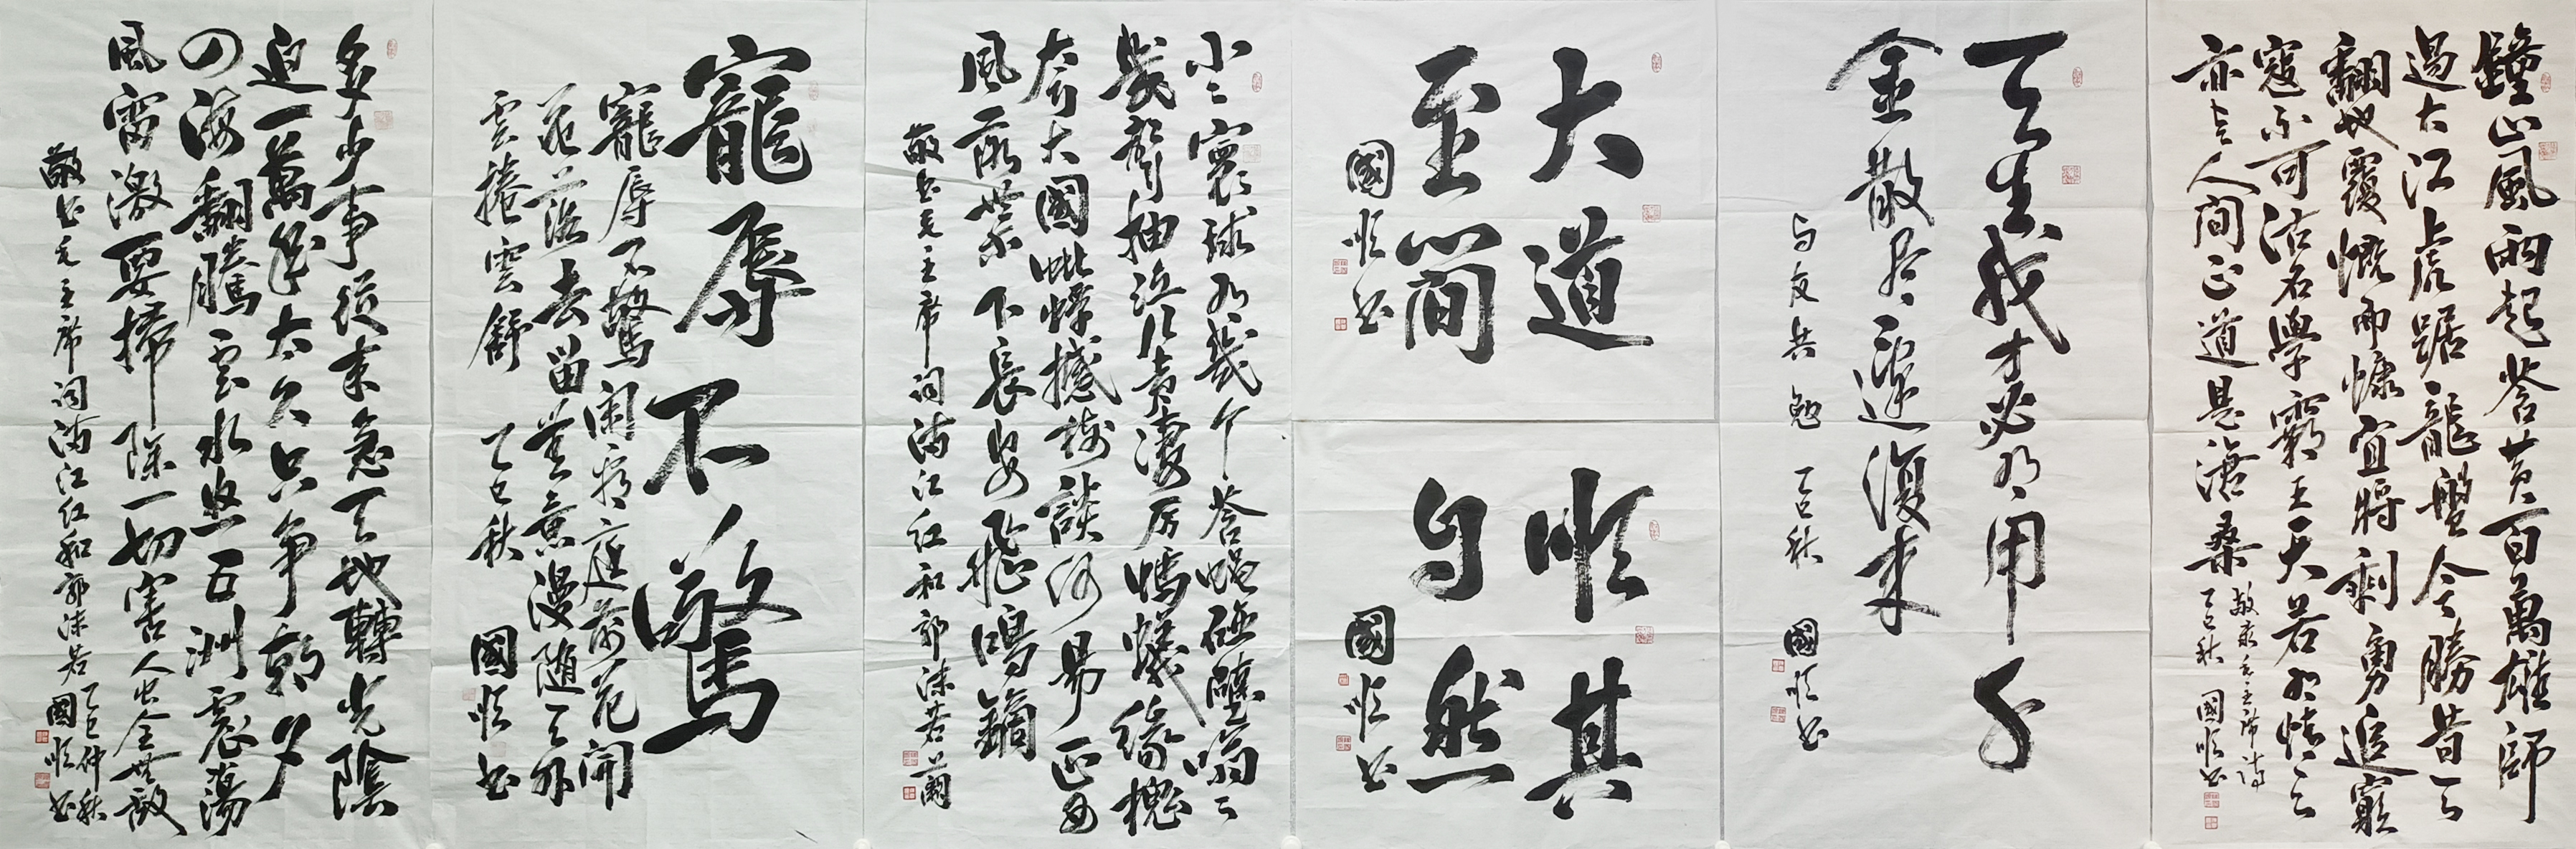 鐘山風雨起蒼黄百萬雄師
過大江虎踞龍盤今勝昔天
翻地覆慨而慷宜將剩勇追窮
寇不可沽名學霸王天若有情天
亦老人間正道是滄桑
敬录毛主席诗
乙巳秋 國順书
天生我才必有用千
金散尽還復来
与友共勉 乙巳秋 國順书
大道
至簡
國順书
順其
自然
國順书
小小寰球有幾个蒼蠅碰壁嗡嗡
幾聲抽泣几声淒厉螞蟻緣槐
夸大國蚍蜉撼樹談何易正西
風落葉下長安飛鳴鏑
敬书毛主席词满江红和郭沫若
寵辱不驚
寵辱不驚闲看庭前花開
花落去留無意漫随天外
雲捲雲舒 乙巳秋 國順书
多少事從来急天地轉光陰
迫一萬年太久只争朝夕
四海翻騰雲水怒五洲震蕩
風雷激要掃除一切害人虫全無敵
敬书毛主席词满江红和郭沫若
乙巳仲秋
國順书